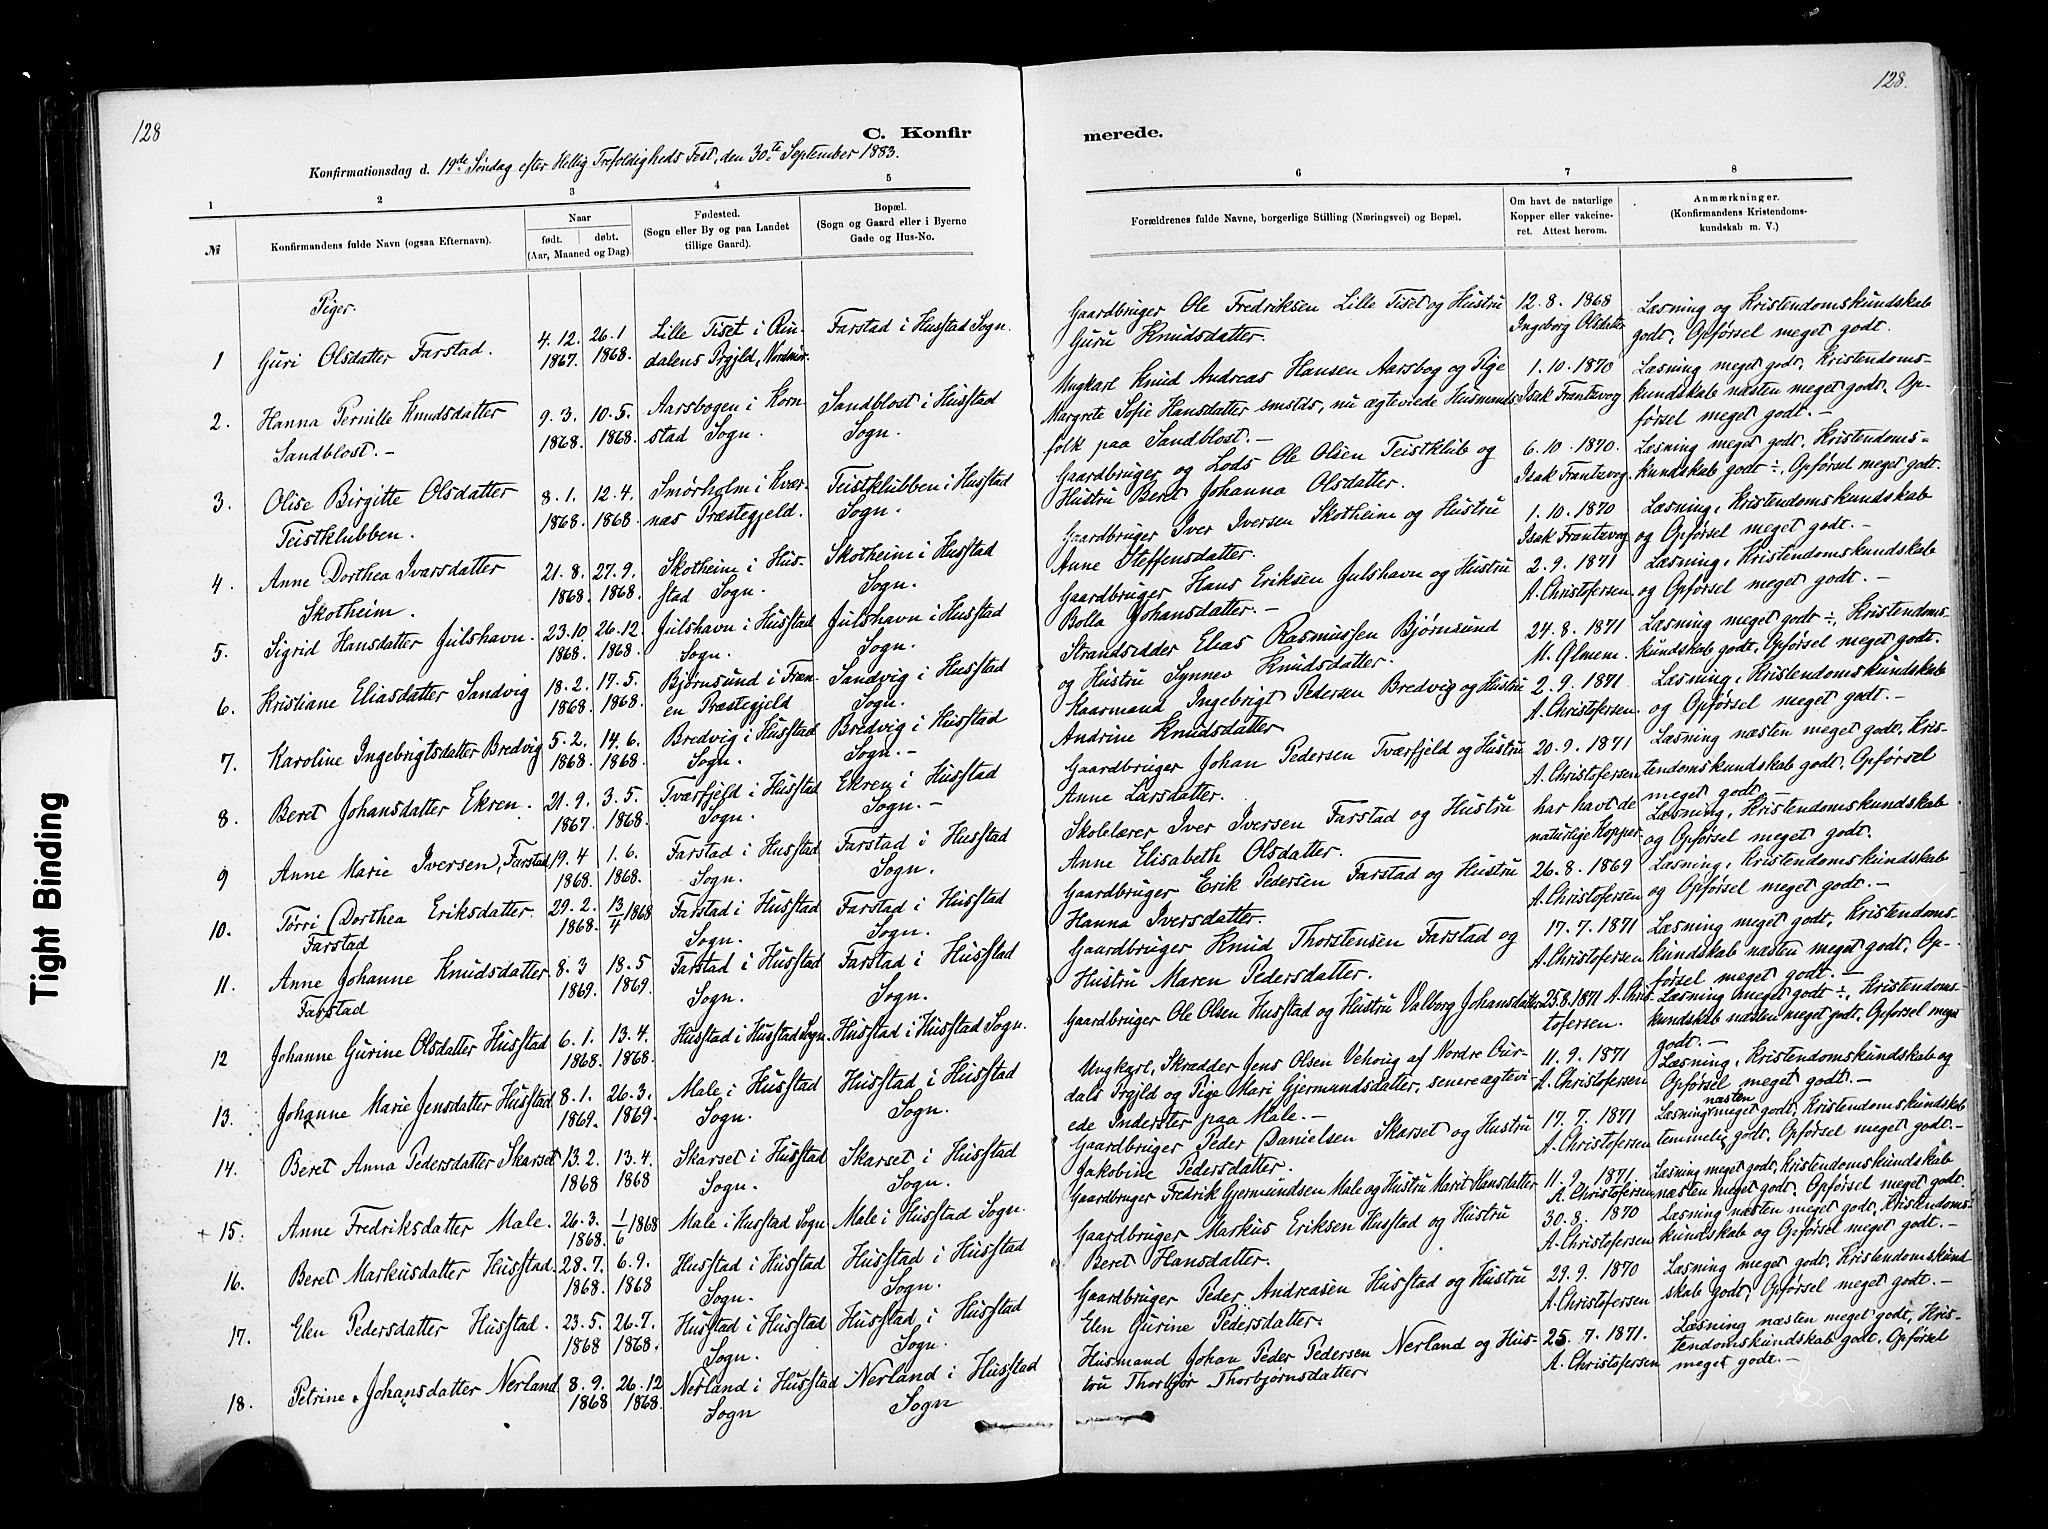 128
128.
C. Konfir
merede.
Konfirmationsdag d. 19de Søndag efter Hellig Trefoldigheds Fest, den 30te September 1883.
1
2
3
4
5
6
7
8
№
Konfirmandens fulde Navn (ogsaa Efternavn).
Naar
født. døbt.
(Aar, Maaned og Dag)
Fødested.
(Sogn eller By og paa Landet
tillige Gaard).
Bopæl.
(Sogn og Gaard eller i Byerne
Gade og Hus-No.
Forældrenes fulde Navne, borgerlige Stilling (Næringsvei) og Bopæl.
Om havt de naturlige
Kopper eller vakcine-
ret. Attest herom.
Anmærkninger.
(Konfirmandens Kristendoms-
kundskab m. V.)
Piger.
1 Guri Olsdatter Farstad.
4.12. 26.1
1867. 1868.
Lille Tiset i Rin-
dalens Prgjld, Nordmør.
Farstad i Husstad Sogn.
Gaardbruger Ole Fredriksen Lille Tiset og Hustru
Guru Knudsdatter.
12.8. 1868
Ingeborg Olsdatter
Læsning og Kristendomskundskab
godt, Opførsel meget godt.
2. Hanna Pernille Knudsdatter
Sandblost. -
9.3. 10.5.
1868. 1868.
Aarsbogen i Korn-
stad Sogn.
Sandblost i Husstad
Sogn.
Ungkarl Knud Andreas Hansen Aarsbog og Pige
Margrete Sofie Hansdatter smstds, nu ægteviede Husmands-
folk paa Sandblost. -
1.10. 1870
Isak Frantzvog
Læsning meget godt, Kristendoms-
kundskab næsten meget godt, Op-
førsel meget godt. -
3. Olise Birgitte Olsdatter
Teistklubben.
8.1. 12.4.
1868. 1868.
Smørholm i Kvær-
næs Præstegjeld.
Teistklubben i Husstad
Sogn.
Gaardbruger og Lods Ole Olsen Teistklub og
Hustru Beret Johanna Olsdatter.
6.10. 1870.
Isak Frantzvog.
Læsning meget godt, Kristendoms-
kundskab godt ÷, Opførsel meget godt.
4. Anne Dorthea Ivarsdatter
Skotheim.
21.8. 27.9.
1868. 1868.
Skotheim i Hus-
stad Sogn.
Skotheim i Husstad
Sogn.
Gaardbruger Iver Iversen Skotheim og Hustru
Anne Steffensdatter.
1.10. 1870
Isak Frantzvog
Læsning, Kristendomskundskab
og Opførsel meget godt. -
5. Sigrid Hansdatter Julshavn.
23.10. 26.12.
1868. 1868.
Julshavn i Husstad
Sogn.
Julshavn i Husstad
Sogn.
Gaardbruger Hans Eriksen Julshavn og Hustru
Bolla Johansdatter. -
2.9. 1871
A. Christofersen.
Læsning, Kristendomskundskab
og Opførsel meget godt. -
6. Kristiane Eliasdatter Sandvig
18.2. 17.5.
1868. 1868.
Bjørnsund i Fræn-
en Præstegjeld
Sandvig i Husstad
Sogn.
Strandsidder Elias Rasmussen Bjørnsund
og Hustru Synnev Knudsdatter.
24.8. 1871
Læsning meget godt ÷, Kristendoms-
kundskab godt, Opførsel meget godt.
7. Karoline Ingebrigtsdatter Bredvig
5.2. 14.6.
1868. 1868.
Bredvig i Husstad
Sogn.
Bredvig i Husstad
Sogn. -
Kaarmand Ingebrigt Pedersen Bredvig og Hustru
Andrine Knudsdatter
2.9. 1871
A. Christofersen.
Læsning, Kristendomskundskab
og Opførsel meget godt. -
8. Beret Johansdatter Ekren.
21.9. 3.5.
1867. 1868.
Tværfjeld i Husstad
Sogn.
Ekren i Husstad
Sogn. -
Gaardbruger Johan Pedersen Tværfjeld og Hustru
Anne Larsdatter.
20.9. 1871
A. Christofersen
Læsning næsten meget godt, Kris-
tendomskundskab godt, Opførsel
meget godt. -
9 Anne Marie Iversen, Farstad
19.4 1.6.
1868. 1868.
Farstad i Husstad
Sogn.
Farstad i Husstad
Sogn.
Skolelærer Iver Iversen Farstad og Hustru
Anne Elisabeth Olsdatter.
har havt de
naturlige Kopper.
Læsning, Kristendomskundskab
og Opførsel meget godt.
10. Tørri Dorthea Eriksdatter.
Farstad
29.2. 13/4 1868
1868.
Farstad i Husstad
Sogn.
Farstad i Husstad
Sogn.
Gaardbruger Erik Pedersen Farstad og Hustru
Hanna Iversdatter.
26.8. 1869
A. Christofersen
Læsning, Kristendomskundskab
og Opførsel meget godt. -
11. Anne Johanne Knudsdatter
Farstad
8.3 18.5
1869. 1869.
Farstad i Husstad
Sogn.
Farstad i Husstad
Sogn.
Gaardbruger Knud Thorstensen Farstad og
Hustru Maren Pedersdatter.
17.7. 1871
A. Christofersen.
Læsning meget godt, Kristendoms-
kundskab næsten meget godt, Op-
førsel meget godt. -
12 Johanne Gurine Olsdatter Husstad
6.1. 13.4.
1868. 1868.
Husstad i Husstad Sogn.
Husstad i Husstad Sogn.
Gaardbruger Ole Olsen Husstad og Hustru Valborg Johansdatter
25.8.1871 A. Chris-
tofersen.
Læsning meget godt ÷, Kristendoms-
kundskab næsten meget godt, Opførsel meget
godt. -
13. Johanne Marie Jensdatter Husstad
8.1. 26.3.
1869. 1869.
Male i Husstad
Sogn.
Husstad i Husstad
Sogn.
Ungkarl, Skrædder Jens Olsen Vehrig af Nordre Our-
dals Prgjld og Pige Mari Gjermundsdatter, senere ægtevi-
ede Inderster paa Male. -
11.9. 1871
A. Christofersen
Læsning, Kristendomskundskab og
Opførsel meget godt. -
14. Beret Anna Pedersdatter Skarset
13.2. 13.4.
1868 1868
Skarset i Husstad
Sogn.
Skarset i Husstad
Sogn.
Gaardbruger Peder Danielsen Skarset og Hustru
Jakobine Pedersdatter.
17.7. 1871
A. Christofersen
næsten
Læsning meget godt, Kristendomskundskab
temmelig godt, Opførsel meget godt. -
+ 15. Anne Fredriksdatter Male.
26.3. 1/6 1868
1868.
Male i Husstad Sogn
Male i Husstad Sogn.
Gaardbruger Fredrik Gjermundsen Male og Hustru Marit Hansdatter
11.9. 1871.
A. Christofersen
Læsning meget godt, Kristendomskundskab
næsten meget godt, Opførsel meget godt.
16. Beret Markusdatter Husstad.
28.7. 6.9.
1868. 1868
Husstad i Husstad
Sogn.
Husstad i Husstad
Sogn.
Gaardbruger Markus Eriksen Husstad og Hustru
Beret Hansdatter.
30.8. 1870
A. Christofersen
Læsning næsten meget godt, Kristendoms-
kundskab og Opførsel meget godt. -
17. Elen Pedersdatter Husstad.
23.5. 26.7.
1868 1868.
Husstad i Husstad
Sogn.
Husstad i Husstad
Sogn.
Gaardbruger Peder Andreasen Husstad og Hustru
Elen Gurine Pedersdatter.
29.9. 1870
A. Christofersen
Læsning meget godt, Kristendomskund
skab godt, Opførsel meget godt. -
18. Petrine Johansdatter Nerland
8.9. 26.12
1868 1868.
Nerland i Husstad
Sogn
Nerland i Husstad
Sogn
Husmand Johan Peder Pedersen Nerland og Hus-
tru Thorbjør Thorbjørnsdatter.
25.7. 1871.
A. Christofersen
Læsning næsten meget godt, Kris-
tendomskundskab godt, Opførsel
meget godt. -
Tight Binding